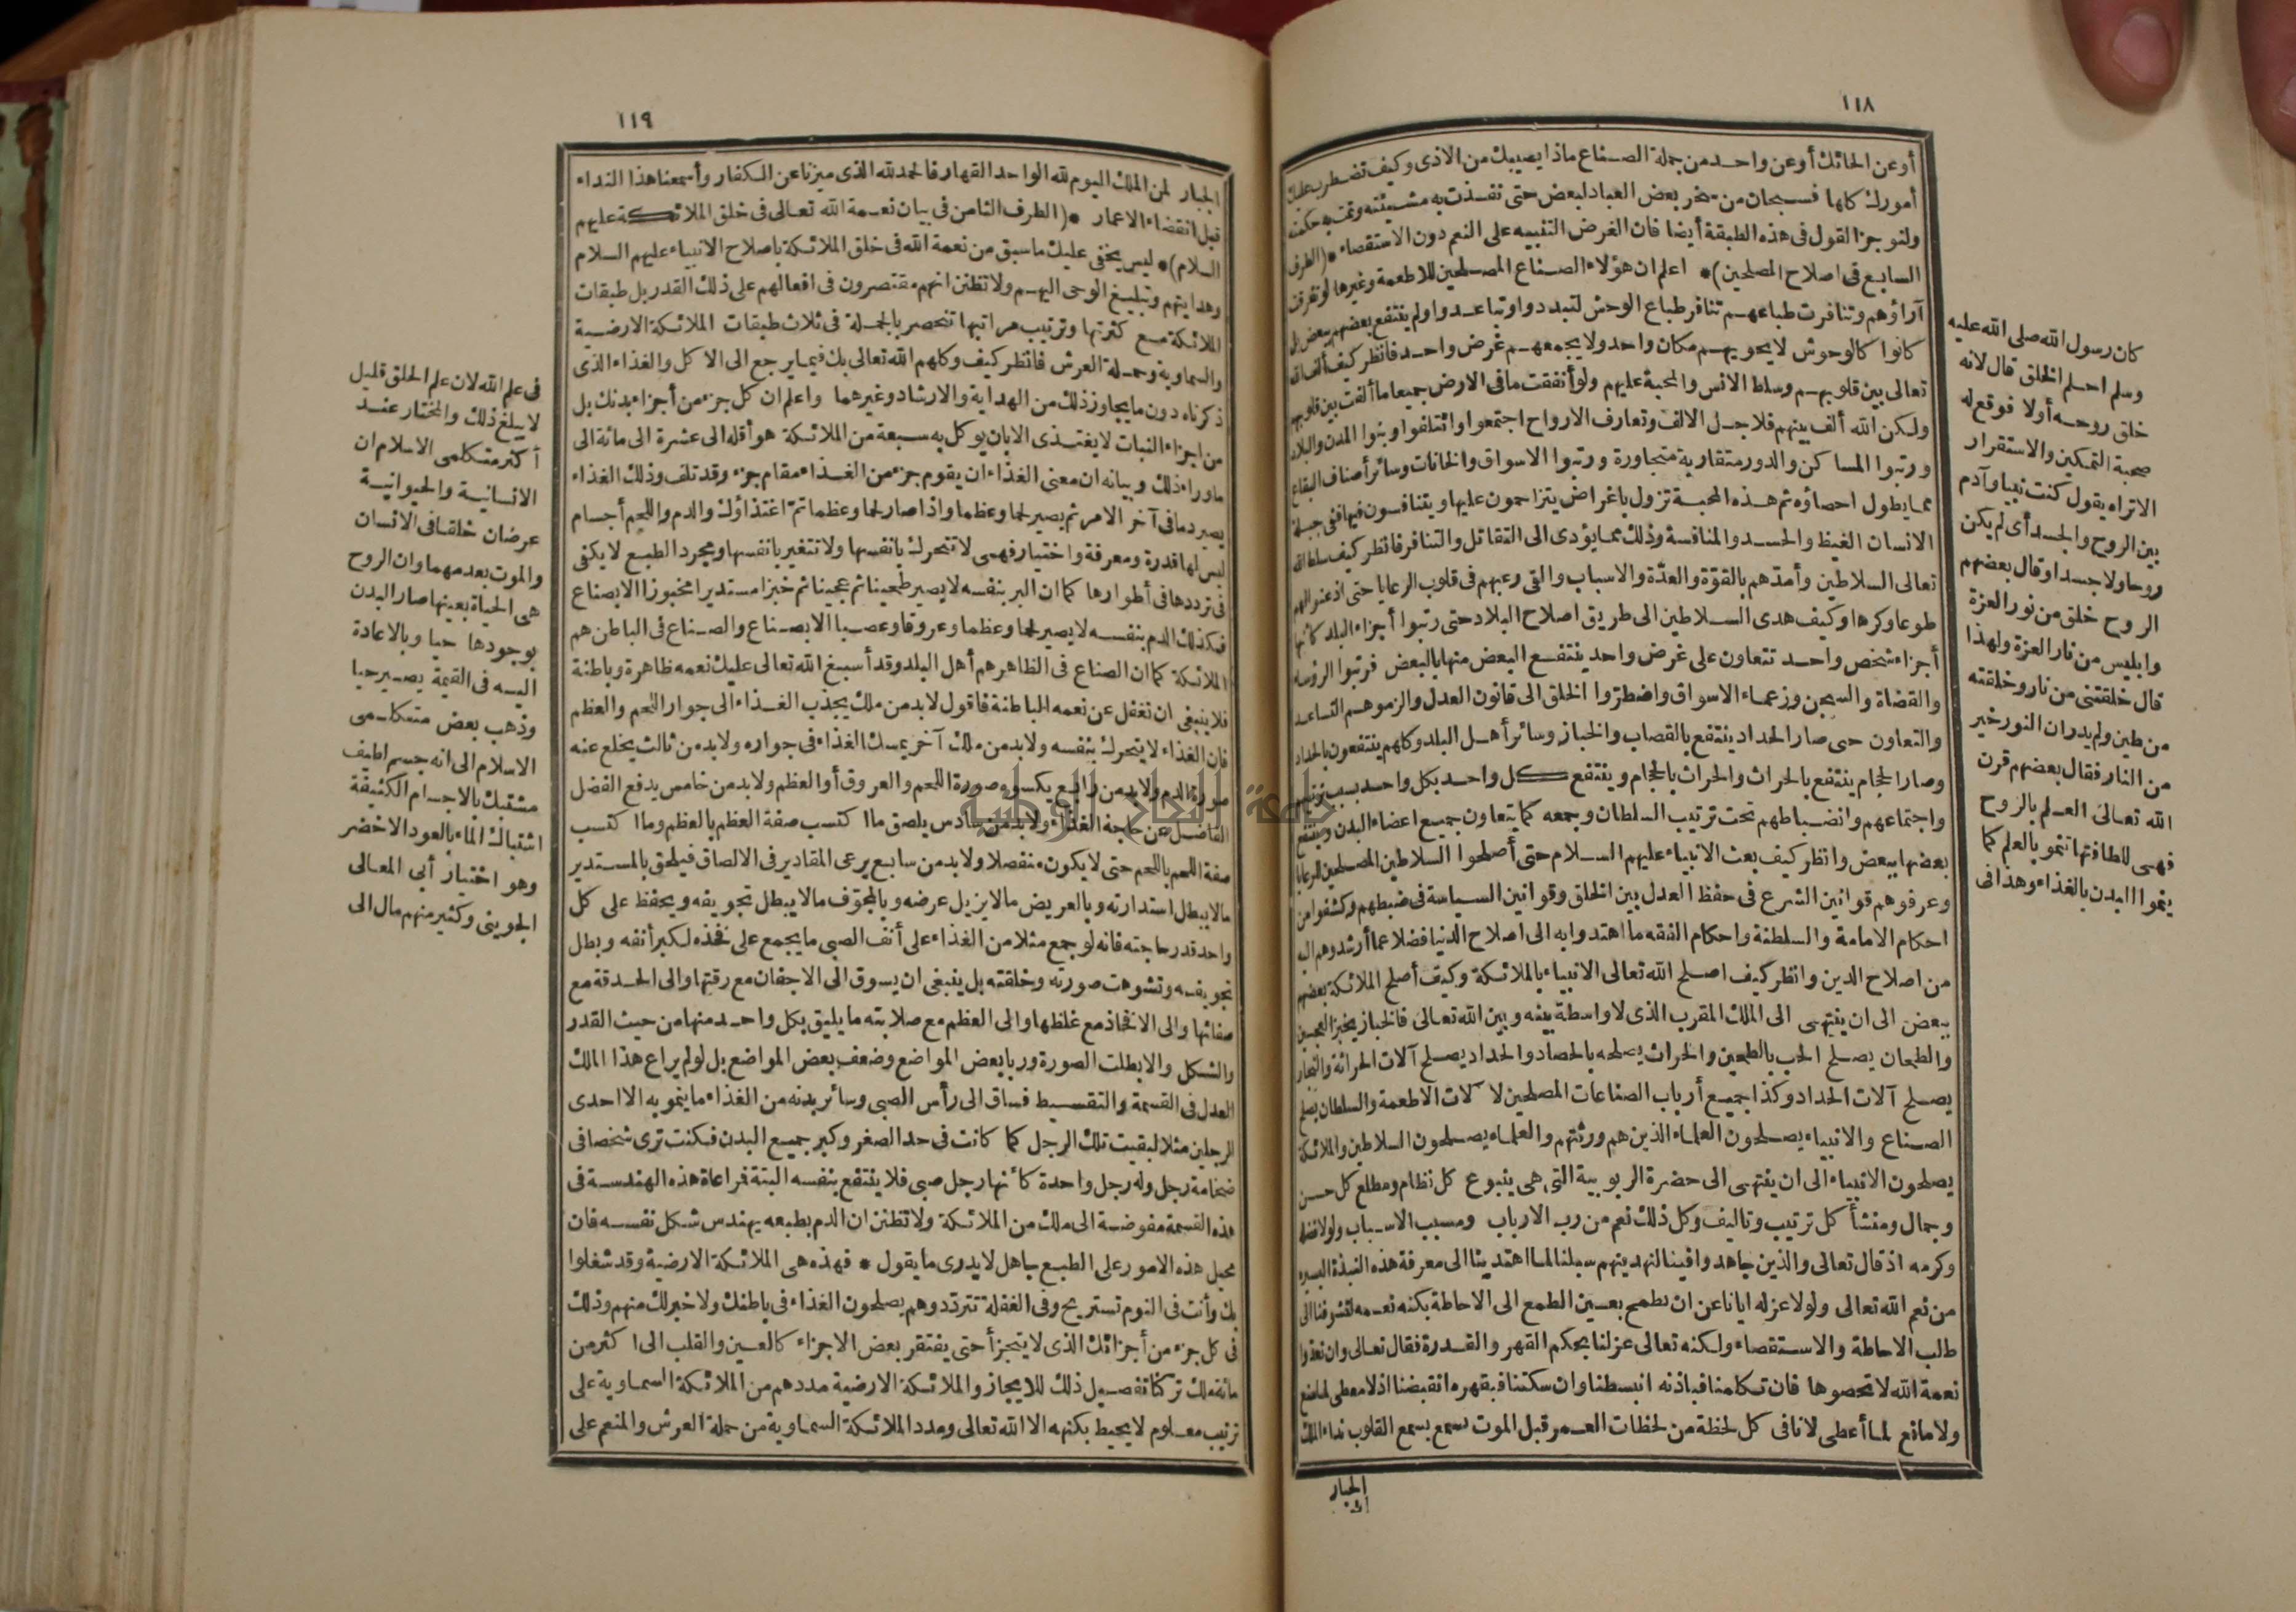 ١١٨
أو عن الحائك أو عن واحد من جملة الصناع ماذا يصيبك من الاذى وكيف تضطرب عليك
أمورك كلها فسبحان من سخر بعض العباد لبعض حتى نفذت به مشيئته وتمت به حكمته
ولنوجز القول فى هذه الطبقة أيضا فان الغرض التنبيه على النعم دون الاستقصاء * (الطرف
السابع فى اصلاح المصلحين) * اعلم ان هؤلاء الصناع المصلحين للاطعمة وغيرها لو تفرقت
آراؤهم وتنافرت طباعهم تنافر طباع الوحش لتبددوا وتباعدوا ولم ينتفع بعضهم ببعض بل
كانوا كالوحوش لا يحويهم مكان واحد ولا يجمعهم غرض واحد فانظر كيف ألف الله
تعالى بين قلوبهم وسلط الانس والمحبة عليهم ولو أنفقت ما فى الارض جميعا ما ألفت بين قلوبهم
ولكن الله ألف بينهم فلاجل الالف وتعارف الارواح اجتمعوا وائتلفوا وبنوا المدن والبلاد
ورتبوا المساكن والدور متقاربة متجاورة ورتبوا الاسواق والخانات وسائر أصناف البقاع
مما يطول احصاؤه ثم هذه المحبة تزول باغراض يتزاحمون عليها ويتنافسون فيها ففى جبلة
الانسان الغيظ والحسد والمنافسة وذلك مما يؤدى الى التقاتل والتنافر فانظر كيف سلط الله
تعالى السلاطين وأمدهم بالقوة والعدة والاسباب والقى رعبهم فى قلوب الرعايا حتى اذعنوا لهم
طوعا وكرها وكيف هدى السلاطين الى طريق اصلاح البلاد حتى رتبوا أجزاء البلد كأنها
أجزاء شخص واحد تتعاون على غرض واحد ينتفع البعض منها بالبعض فرتبوا الرؤساء
والقضاة والسجن وزعماء الاسواق واضطروا الخلق الى قانون العدل والزموهم التساعد
والتعاون حتى صار الحداد ينتفع بالقصاب والخباز وسائر أهل البلد وكلهم ينتفعون بالحداد
وصار الحجام ينتفع بالحراث والحراث بالحجام وينتفع كل واحد بكل واحد بسبب ترتيبهم
واجتماعهم وانضباطهم تحت ترتيب السلطان وجمعه كما يتعاون جميع اعضاء البدن وينتفع
بعضها ببعض وانظر كيف بعث الانبياء عليهم السلام حتى أصلحوا السلاطين المصلحين للرعايا
وعرفوهم قوانين الشرع فى حفظ العدل بين الخلق وقوانين السياسة فى ضبطهم وكشفوا من
احكام الامامة والسلطنة واحكام الفقه ما اهتدوا به الى اصلاح الدنيا فضلا عما أرشدوهم اليه
من اصلاح الدين وانظر كيف اصلح الله تعالى الانبياء بالملائكة وكيف أصلح الملائكة بعضهم
ببعض الى ان ينتهى الى الملك المقرب الذى لا واسطة بينه وبين الله تعالى فالخباز يخبز العجين
والطحان يصلح الحب بالطحين والحراث يصلحه بالحصاد والحداد يصلح آلات الحراثة والنجار
يصلح آلات الحداد وكذا جميع أرباب الصناعات المصلحين لآلات الاطعمة والسلطان يصلح
الصناع والانبياء يصلحون العلماء الذين هم ورثتهم والعلماء يصلحون السلاطين والملائكة
يصلحون الانبياء الى ان ينتهى الى حضرة الربوبية التى هى ينبوع كل نظام ومطلع كل حسن
وجمال ومنشأ كل ترتيب وتاليف وكل ذلك نعم من رب الارباب ومسبب الاسباب ولولا فضله
وكرمه اذ قال تعالى والذين جاهدوا فينا لنهدينهم سبلنا لما اهتدينا الى معرفة هذه النبذة اليسيرة
من نعم الله تعالى ولولا عزله ايانا عن ان نطمح بعين الطمع الى الاحاطة بكنه نعمه لتشوفنا الى
طلب الاحاطة والاستقصاء ولكنه تعالى عزلنا بحكم القهر والقدرة فقال تعالى وان تعدوا
نعمة الله لا تحصوها فان تكلمنا فباذنه انبسطنا وان سكتنا فبقهره انقبضنا اذ لا معطى لما منع
ولا مانع لما أعطى لانا فى كل لحظة من لحظات العمر قبل الموت نسمع بسمع القلوب نداء الملك
الجبار
كان رسول الله صلى الله عليه
وسلم احلم الخلق قال لانه
خلق روحه أولا فوقع له
صحبة التمكين والاستقرار
الاتراه يقول كنت نبيا وآدم
بين الروح والجسد أى لم يكن
روحا ولا جسدا وقال بعضهم
الروح خلق من نور العزة
وابليس من نار العزة ولهذا
قال خلقتنى من نار وخلقته
من طين ولم يدر ان النور خير
من النار فقال بعضهم قرن
الله تعالى العلم بالروح
فهى للطافتها تنمو بالعلم كما
ينمو البدن بالغذاء وهذا فى
١١٩
الجبار لمن الملك اليوم لله الواحد القهار فالحمد لله الذى ميزنا عن الكفار وأسمعنا هذا النداء
قبل انقضاء الاعمار * (الطرف الثامن فى بيان نعمة الله تعالى فى خلق الملائكة عليهم
السلام) * ليس يخفى عليك ما سبق من نعمة الله فى خلق الملائكة باصلاح الانبياء عليهم السلام
وهدايتهم وتبليغ الوحى اليهم ولا تظنن انهم مقتصرون فى افعالهم على ذلك القدر بل طبقات
الملائكة مع كثرتها وترتيب مراتبها تنحصر بالجملة فى ثلاث طبقات الملائكة الارضية
والسماوية وحملة العرش فانظر كيف وكلهم الله تعالى بك فيما يرجع الى الاكل والغذاء الذى
ذكرناه دون ما يجاوز ذلك من الهداية والارشاد وغيرهما واعلم ان كل جزء من أجزاء بدنك بل
من اجزاء النبات لا يغتذى الا بان يوكل به سبعة من الملائكة هو أقله الى عشرة الى مائة الى
ما وراء ذلك وبيانه ان معنى الغذاء ان يقوم جزء من الغذاء مقام جزء وقد تلف وذلك الغذاء
يصير دما فى آخر الامر ثم يصير لحما وعظما واذا صار لحما وعظما تم اغتذاؤك والدم واللحم أجسام
ليس لها قدرة ومعرفة واختيار فهى لا تتحرك بانفسها ولا تتغير بانفسها ومجرد الطبع لا يكفى
فى ترددها فى أطوارها كما ان البر بنفسه لا يصير طحينا ثم عجينا ثم خبزا مستديرا مخبوزا الا بصناع
فكذلك الدم بنفسه لا يصير لحما وعظما وعروقا وعصبا الا بصناع والصناع فى الباطن هم
الملائكة كما ان الصناع فى الظاهر هم أهل البلد وقد أسبغ الله تعالى عليك نعمه ظاهرة وباطنة
فلا ينبغى ان تغفل عن نعمه الباطنة فاقول لا بد من ملك يجذب الغذاء الى جوار اللحم والعظم
فان الغذاء لا يتحرك بنفسه ولا بد من ملك آخر يمسك الغذاء فى جواره ولا بد من ثالث يخلع عنه
صورة الدم ولا بد من رابع يكسوه صورة اللحم والعروق أو العظم ولا بد من خامس يدفع الفضل
الفاضل عن حاجة الغذاء ولا بد من سادس يلصق ما اكتسب صفة العظم بالعظم وما اكتسب
صفة اللحم باللحم حتى لا يكون منفصلا ولا بد من سابع يرعى المقادير فى الالصاق فيلحق بالمستدير
مالا يبطل استدارته وبالعريض مالا يزيل عرضه وبالمجوف مالا يبطل تجويفه ويحفظ على كل
واحد قدر حاجته فانه لو جمع مثلا من الغذاء على أنف الصبى ما يجمع على فخذه لكبر أنفه وبطل
تجويفه وتشوهت صورته وخلقته بل ينبغى ان يسوق الى الاجفان مع رقتها والى الحدقة مع
صفائها والى الافخاذ مع غلظها والى العظم مع صلابته ما يليق بكل واحد منها من حيث القدر
والشكل والا بطلت الصورة وربا بعض المواضع وضعف بعض المواضع بل لو لم يراع هذا الملك
العدل فى القسمة والتقسيط فساق الى رأس الصبى وسائر بدنه من الغذاء ما ينمو به الا احدى
الرجلين مثلا لبقيت تلك الرجل كما كانت فى حد الصغر وكبر جميع البدن فكنت ترى شخصا فى
ضخامة رجل وله رجل واحدة كأنها رجل صبى فلا ينتفع بنفسه البتة فمراعاة هذه الهندسة فى
هذه القسمة مفوضة الى ملك من الملائكة ولا تظنن ان الدم بطبعه يهندس شكل نفسه فان
محيل هذه الامور على الطبع جاهل لا يدرى ما يقول * فهذه هى الملائكة الارضية وقد شغلوا
بك وأنت فى النوم تستريح وفى الغفلة تتردد وهم يصلحون الغذاء فى باطنك ولا خبر لك منهم وذلك
فى كل جزء من أجزائك الذى لا يتجزأ حتى يفتقر بعض الاجزاء كالعين والقلب الى اكثر من
مائة ملك تركنا تفصيل ذلك للايجاز والملائكة الارضية مددهم من الملائكة السماوية على
ترتيب معلوم لا يحيط بكنهه الا الله تعالى ومدد الملائكة السماوية من حملة العرش والمنعم على
فى علم الله لان علم الخلق قليل
لا يبلغ ذلك والمختار عند
أكثر متكلمى الاسلام ان
الانسانية والحيوانية
عرضان خلقا فى الانسان
والموت يعدمهما وان الروح
هى الحياة بعينها صار البدن
بوجودها حيا وبالاعادة
اليه فى القيمة يصير حيا
وذهب بعض متكلمى
الاسلام الى انه جسم لطيف
مشتبك بالاجسام الكثيفة
اشتباك الماء بالعود الاخضر
وهو اختيار أبى المعالى
الجوينى وكثير منهم مال الى